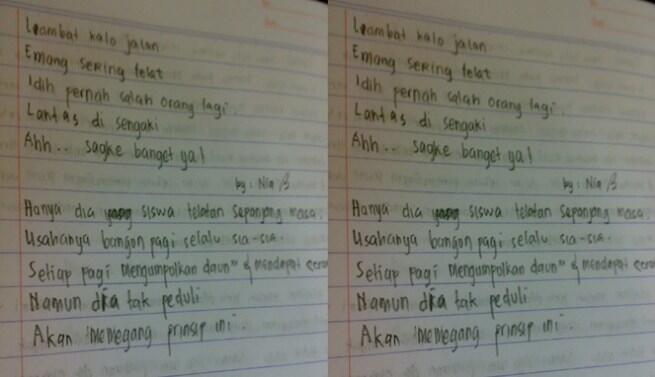 Lambat kalo jalan
Emang sering telat
Idih pernah salah orang lagi.
Lantas di sengaki
Ahh.. sagke banget ya!
by: Nia
Hanya dia siswa telatan sepanjang masa.
Usahanya bangon pagi selalu sia-sia.
Setiap pagi mengumpolkan daun" & mendapat
Namun dia tak peduli
Akan memegang prinsip ini.
Lambat kalo jalan
Emang sering telat
Idih pernah salah orang lagi.
Lantas di sengaki
Ahh.. sagke banget ya!
by: Nia
Hanya dia siswa telatan sepanjang masa.
Usahanya bangon pagi selalu sia-sia.
Setiap pagi mengumpolkan daun" & mendapat
Namun dia tak peduli
Akan memegang prinsip ini.